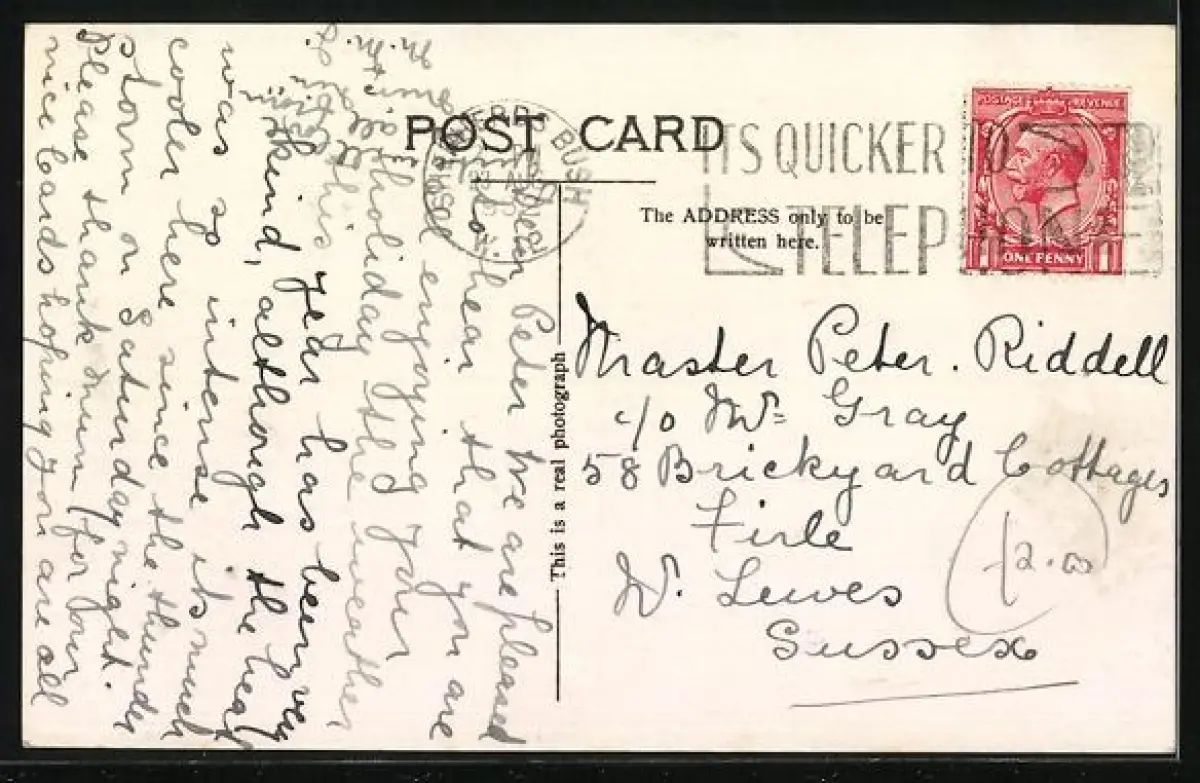 POST CARD
ITS QUICKER TO
TELEPHONE
POSTAGE REVENUE
1 ONE PENNY 1
BUSH
The ADDRESS only to be
written here.
This is a real photograph
Peter We are pleased
to hear that you are
all enjoying
holiday the weather
this year has been very
kind, although the heat
was so intense its much
cooler here since the thunder
storm on Saturday night.
Please thank Mum for our
nice Cards hoping you are all
Master Peter. Riddell
c/o Mrs Gray
58 Brickyard Cottages
Firle
Nr. Lewes
Sussex
£2.00